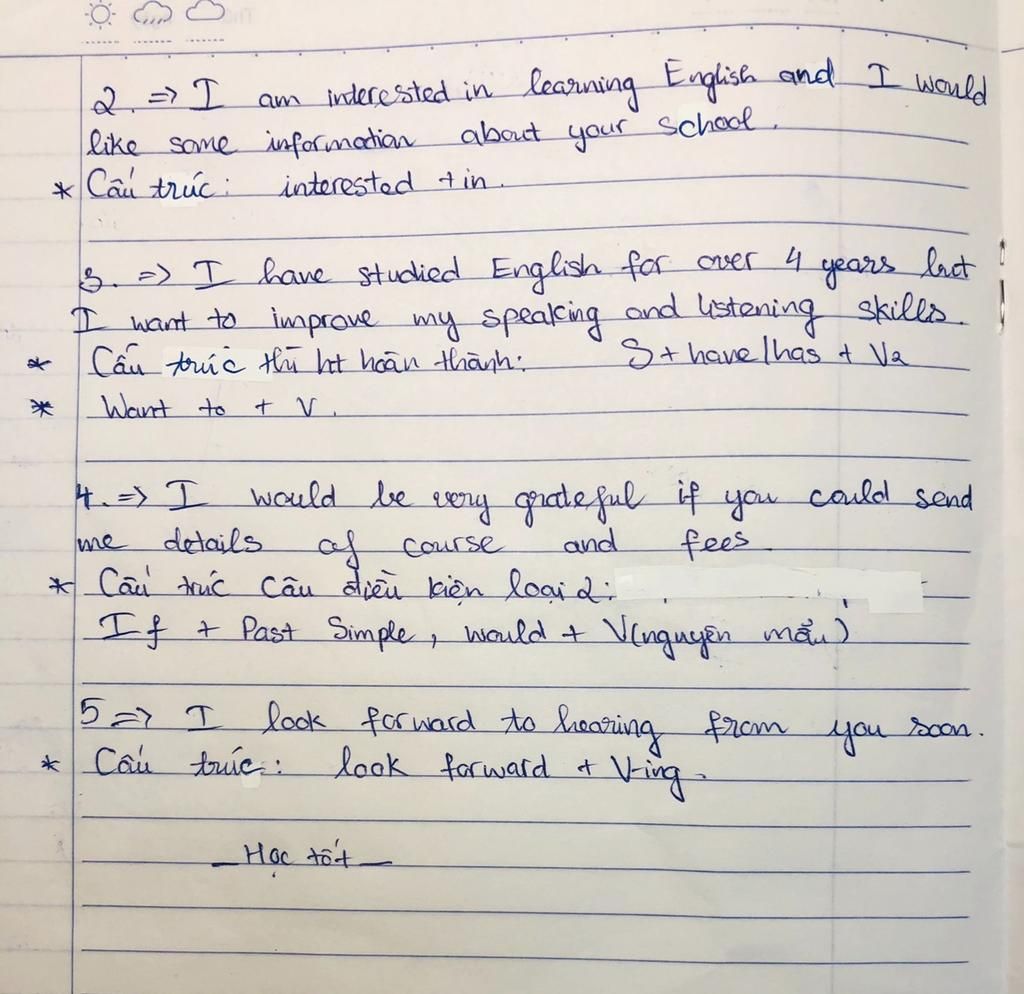 2. => I am interested in learning English and I would
like some information about your school.
* Cấu trúc: interested + in.
3. => I have studied English for over 4 years but
I want to improve my speaking and listening skills.
* Cấu trúc thì ht hoàn thành: S + have/has + V2
* Want to + V.
4. => I would be very grateful if you could send
me details of course and fees.
* Cấu trúc câu điều kiện loại 2:
If + Past Simple, would + V(nguyên mẫu)
5 => I look forward to hearing from you soon.
* Cấu trúc: look forward + V-ing.
— Học tốt —